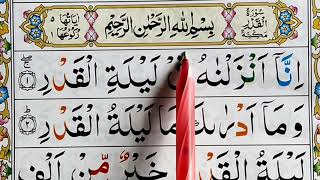 سُورَةُ الْقَدْرِ مَكِّيَّةٌ
بِسْمِ اللّٰهِ الرَّحْمٰنِ الرَّحِيْمِ
اٰيَاتُهَا ٥ رُكُوْعُهَا ١
اِنَّاۤ اَنْزَلْنٰهُ فِیْ لَيْلَةِ الْقَدْرِ ١
وَمَاۤ اَدْرٰىكَ مَا لَيْلَةُ الْقَدْرِ ٢
لَيْلَةُ الْقَدْرِ خَيْرٌ مِّنْ اَلْفِ